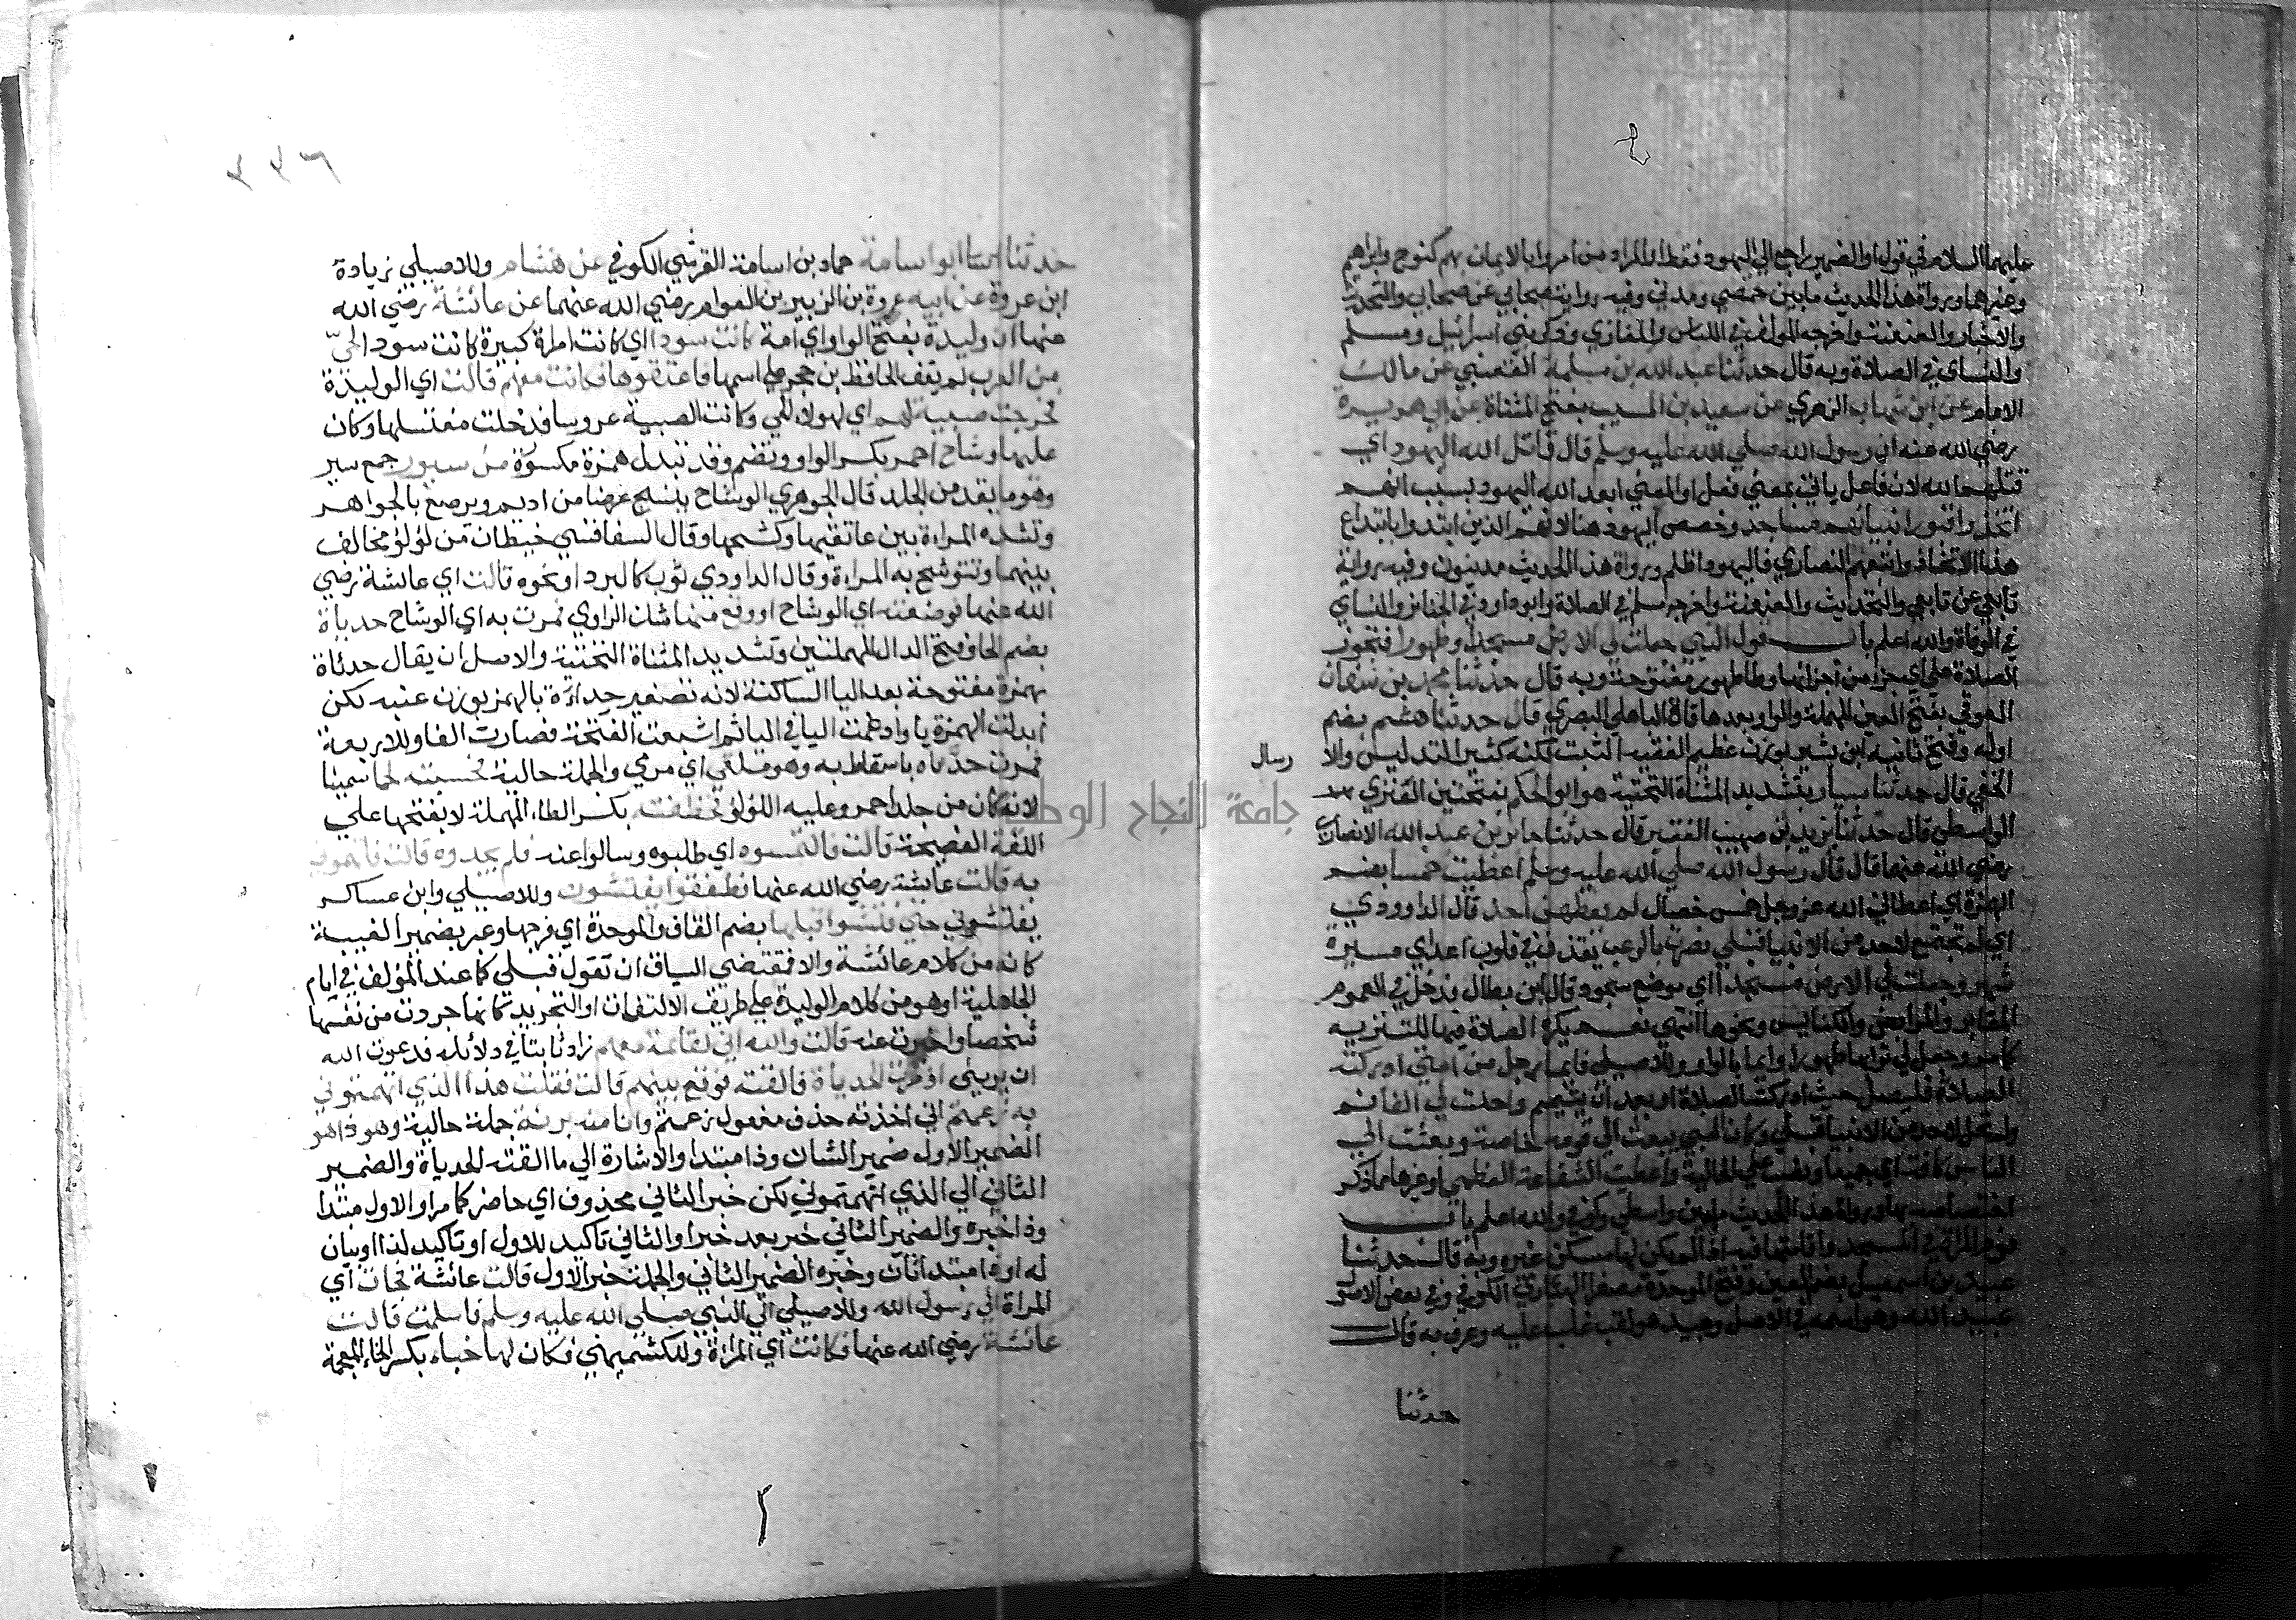 عليهما السلام في قوله او الضمير راجع الي اليهود فقط او المراد من امروا بالايمان بهم كنوح وابراهيم
وغيرهما ورواة هذا الحديث ما بين حمصي ومدني وفيه رواية صحابي عن صحابي والتحديث
والاخبار والعنعنة واخرجه المولف في اللباس والمغازي وذكر بني اسرائيل ومسلم
والنساي في الصلاة وبه قال حدثنا عبد الله بن مسلمة القعنبي عن مالك
الامام عن ابن شهاب الزهري عن سعيد بن المسيب بفتح المثناة عن ابي هريرة
رضي الله عنه ان رسول الله صلي الله عليه وسلم قال قاتل الله اليهود اي
قتلهم الله لان فاعل ياتي بمعني فعل او المعني ابعد الله اليهود بسبب انهم
اتخذوا قبور انبيائهم مساجد وخصص اليهود هنا لانهم الذين ابتدوا بابتداع
هذا الاتخاذ واتبعهم النصاري فاليهود اظلم ورواة هذا الحديث مدنيون وفيه رواية
تابعي عن تابعي والتحديث والعنعنة واخرجه مسلم في الصلاة وابو داود في الجنائز والنساي
في الوفاة والله اعلم باب قول النبي جعلت لي الارض مسجدا وطهورا فتجوز
الصلاة علي اي جزء من اجزائها وطا طهورا مفتوحة وبه قال حدثنا محمد بن سنان
العوقي بفتح العين المهملة والواو بعدها قاف الباهلي البصري قال حدثنا هشيم بضم
اوله وفتح ثانيه ابن بشير بوزن عظيم الفقيه الثبت لكنه كثير التدليس والا
رسال
الخفي قال حدثنا سيار بتشديد المثناة التحتية هو ابو الحكم بفتحتين العنزي
الواسطي قال حدثنا يزيد بن صهيب الفقير قال حدثنا جابر بن عبد الله الانصاري
رضي الله عنهما قال قال رسول الله صلي الله عليه وسلم اعطيت خمسا بضم
الهمزة اي اعطاني الله عز وجل خمس خصال لم يعطهن احد قال الداوودي
اي لم تجتمع لاحد من الانبيا قبلي نصرت بالرعب يقذف في قلوب اعداي مسيرة
شهر وجعلت لي الارض مسجدا اي موضع سجود قال ابن بطال فدخل في العموم
المقابر والمرابض والكنايس ونحوها انتهي نعم يكره الصلاة فيها للتنزيه
كما مر وجعل لي ترابها طهورا وايما بالواو وللاصيلي فايما رجل من امتي ادركته
الصلاة فليصل حيث ادركته الصلاة او بعد ان يتيمم واحلت لي الغانم
ولم تحل لاحد من الانبيا قبلي وكان النبي يبعث الي قومه خاصة وبعثت الي
الناس كافة اي جميعا ونصب علي الحالية واعطيت الشفاعة العظمي او غيرها مما ذكر
اختصاصه بها ورواة هذا الحديث ما بين واسطي وكوفي والله اعلم باب
نوم المراة في المسجد واقامتها فيه اذا لم يكن لها مسكن غيره وبه قال حدثنا
عبيد بن اسمعيل بضم العين وفتح الموحدة مصغرا الهباري الكوفي وفي بعض الاصول
عبيد الله وهو اسمه في الاصل وعبيد هو لقب غلب عليه وعرف به قال
حدثنا
٢٢٦
حدثنا ابو اسامة حماد بن اسامة القرشي الكوفي عن هشام وللاصيلي زيادة
ابن عروة عن ابيه عروة بن الزبير بن العوام رضي الله عنهما عن عائشة رضي الله
عنها ان وليدة بفتح الواو اي امة كانت سودا اي كانت امراة كبيرة كانت سود الحيّ
من العرب لم يقف الحافظ بن حجر علي اسمها فاعتقوها فكانت معهم قالت اي الوليدة
فخرجت صبية لهم اي لهولاء الحي وكانت الصبية عروسا فدخلت مغتسلها وكان
عليها وشاح احمر بكسر الواو وتضم وقد تبدل همزة مكسورة من سيور جمع سير
وهو ما يقد من الجلد قال الجوهري الوشاح ينسج عرضا من اديم ويرصع بالجواهر
وتشده المراة بين عاتقيها وكشحها وقال السفاقسي خيطان من لؤلؤ مخالف
بينهما وتتوشح به المراة وقال الداودي ثوب كالبرد او نحوه قالت اي عائشة رضي
الله عنها فوضعته اي الوشاح او وقع منها شك الراوي فمرت به اي الوشاح حدياة
بضم الحا وفتح الدال المهملتين وتشديد المثناة التحتية والاصل ان يقال حدئاة
بهمزة مفتوحة بعد اليا الساكنة لانه تصغير حداة بالهمز بوزن عنبه لكن
ابدلت الهمزة يا وادغمت اليا في اليا ثم اشبعت الفتحة فصارت الفا وللاربعة
فمرت حدياه باسقاط به وهو ملقي اي مرمي والجملة حالية فحسبته لحما سمينا
لانه كان من جلد احمر وعليه اللؤلؤ فخطفته بكسر الطاء المهملة لا بفتحها علي
اللغة الفصيحة قالت فالتمسوه اي طلبوه وسالوا عنه فلم يجدوه قالت فاتهموني
به قالت عايشة رضي الله عنها فطفقوا يفتشون وللاصيلي وابن عساكر
يفتشوني حتي فتشوا قبلها بضم القاف والموحدة اي فرجها وعبر بضمير الغيبة
كانه من كلام عائشة والا فمقتضي السياق ان تقول قبلي كما عند المؤلف في ايام
الجاهلية او هو من كلام الوليدة علي طريق الالتفات او التجريد كانها جردت من نفسها
شخصا واخبرت عنه قالت والله اني لقائمة معهم زاد ثابتا في دلائله فدعوت الله
ان يبريني اذ مرت الحدياة فالقته فوقع بينهم قالت فقلت هذا الذي اتهمتموني
به زعمتم اني اخذته حذف مفعول زعمتم وانا منه بريئة جملة حالية وهو ذا هو
الضمير الاول ضمير الشان وذا مبتدا والاشارة الي ما القته الحدياة والضمير
الثاني الي الذي اتهمتموني لكن خبر الثاني محذوف اي حاضر كما مر او الاول مبتدا
وذا خبره والضمير الثاني خبر بعد خبر او الثاني تاكيد للاول او تاكيد لذا او بيان
له او ذا مبتدا ثان وخبره الضمير الثاني والجملة خبر الاول قالت عائشة فجات اي
المراة الي رسول الله وللاصيلي الي النبي صلي الله عليه وسلم فاسلمت قالت
عائشة رضي الله عنها فكانت اي المراة وللكشميهني فكان لها خباء بكسر الخاء المعجمة
جامعة النجاح الوط